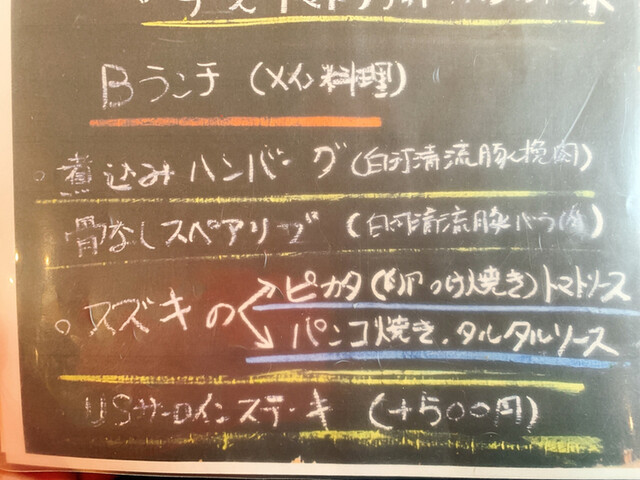 Bランチ (メイン料理)
煮込みハンバーグ (白河清流豚挽肉)
骨なしスペアリブ (白河清流豚バラ肉)
スズキの
ピカタ (卵つけ焼き) トマトソース
パンコ焼き.タルタルソース
USサーロインステーキ (+500円)